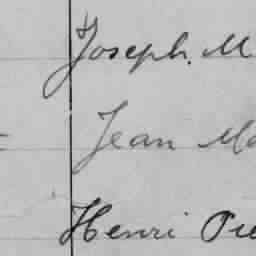 Joseph. M
Jean Ma
Henri Pie